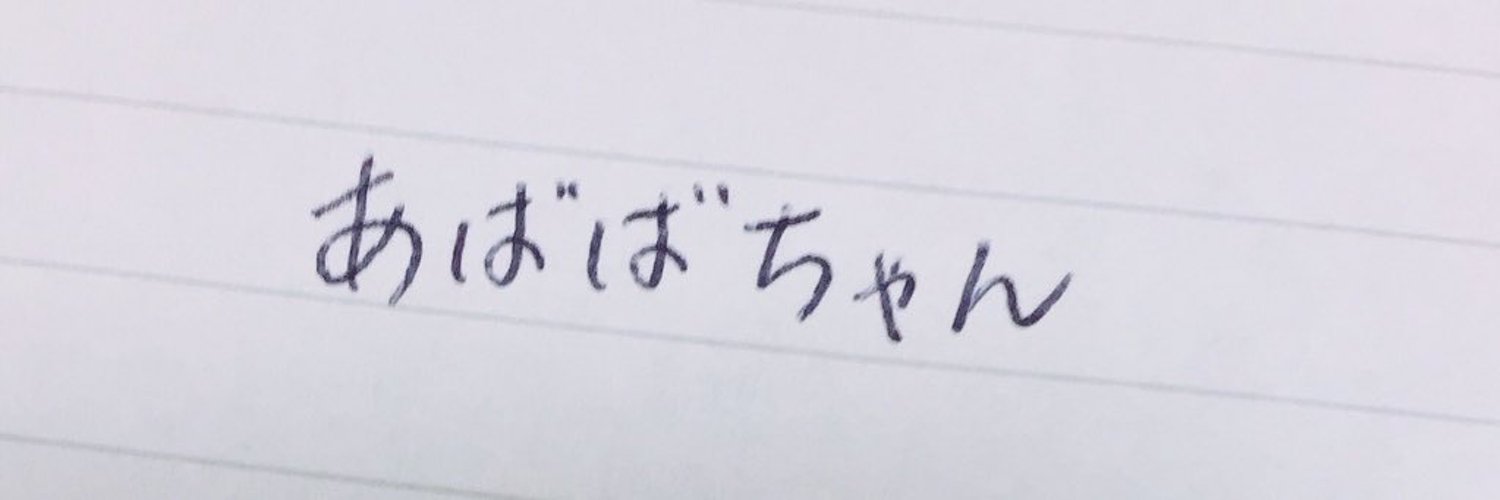 あばばちゃん